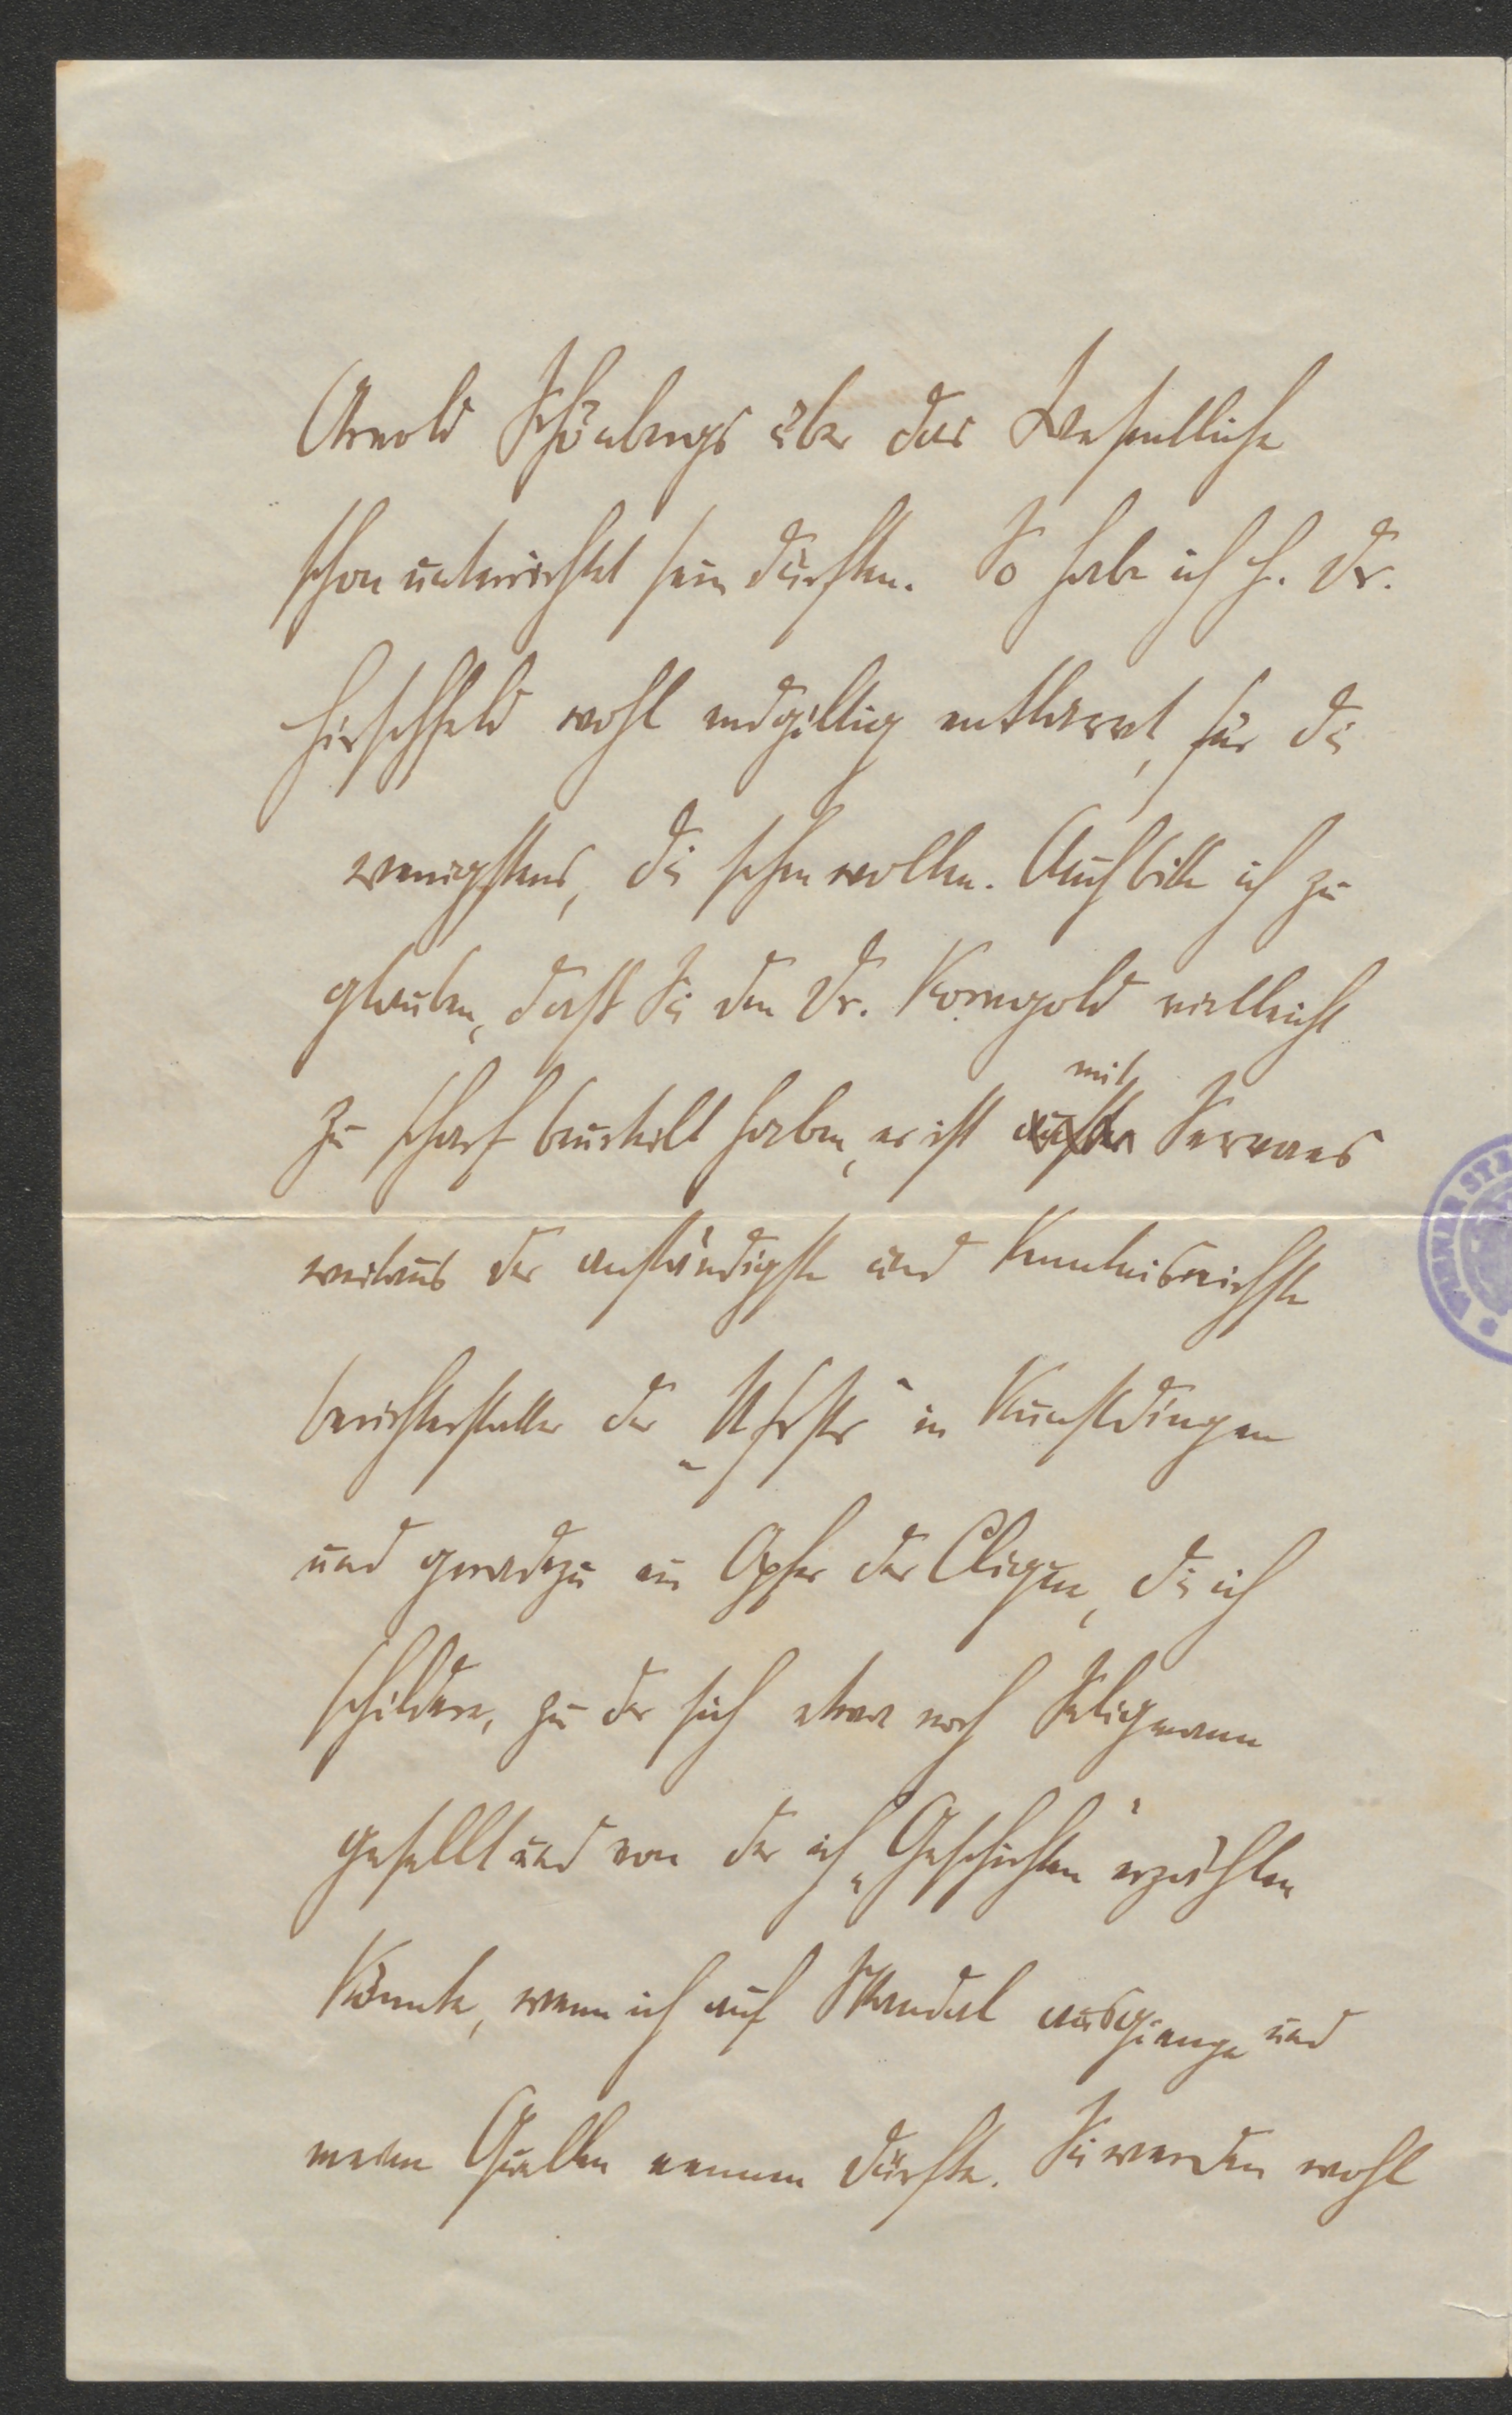 Arnold Schönbergs über das Wesentliche
schon unterrichtet sein dürften. So habe ich H. Dr.
Hirschfeld wohl endgiltig entlarvt, für die
wenigstens, die sehen wollen. Auch bitte ich zu
glauben, daß Sie den Dr. Korngold vielleicht
zu scharf beurteilt haben, er ist mit Servaes
weitaus der anständigste und kenntnisreichste
Berichterstatter der in Kunstdingen
und geradezu ein Opfer der Clique, die ich
schildere, zu der sich etwa noch Seligmann
gesellt und von der ich „Geschichten“ erzählen
könnte, wenn ich auf Skandal ausgienge und
meine Quellen nennen dürfte. Sie werden wohl
WIENER ST